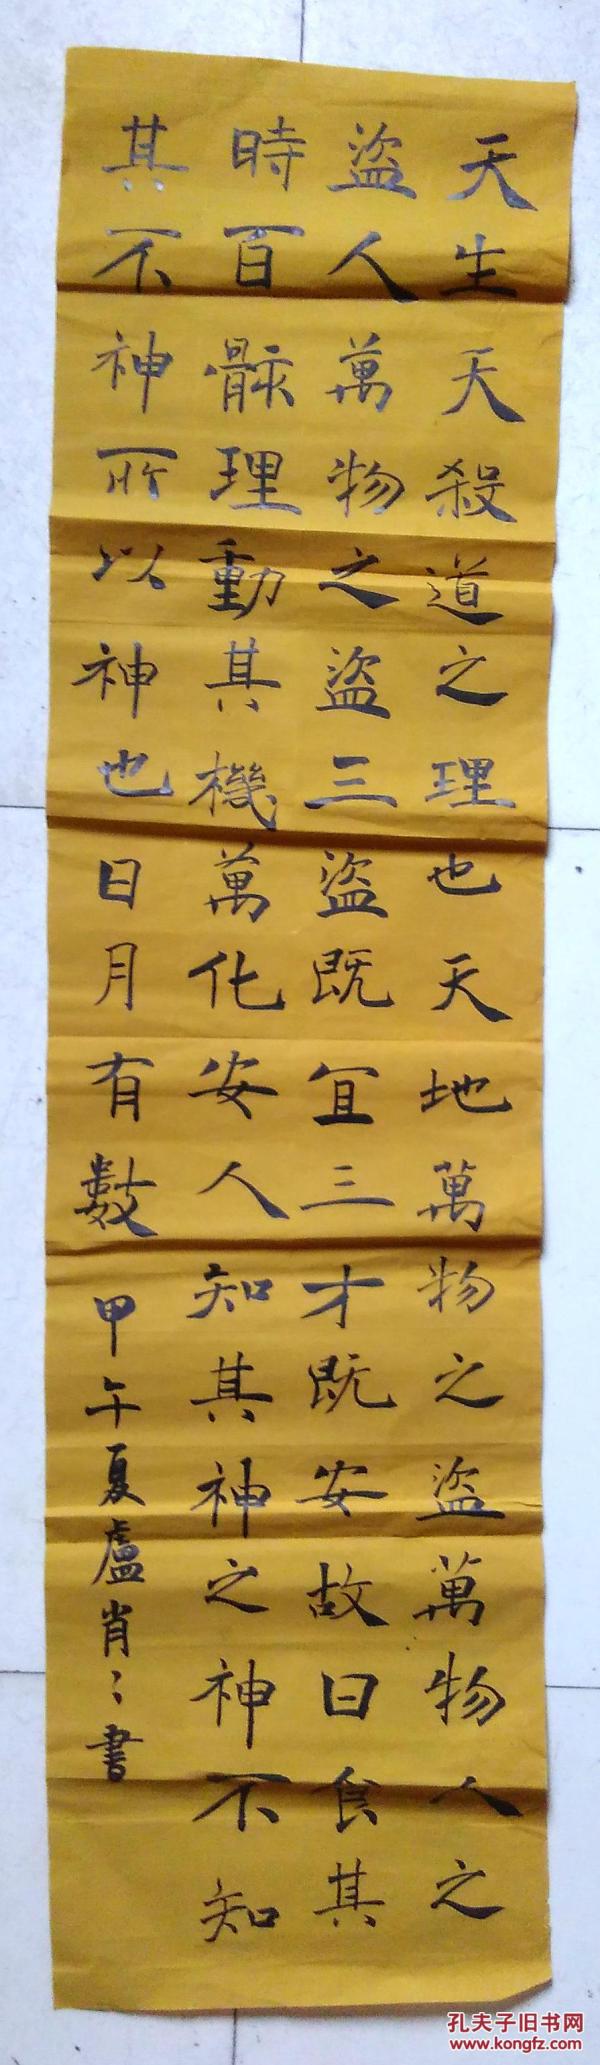 天生天殺道之理也天地萬物之盜萬物人之
盜人萬物之盜三盜既宜三才既安故曰食其
時百骸理動其機萬化安人知其神之神不知
其不神所以神也日月有數
甲午夏盧肖〻書
孔夫子旧书网
www.kongfz.com